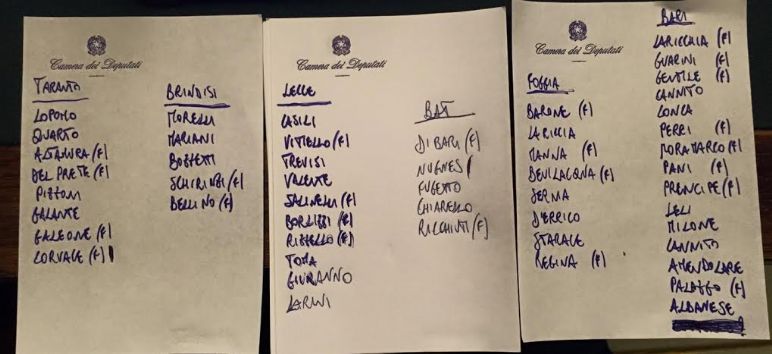 Camera dei Deputati
TARANTO
LOPOMO
QUARTO
ALTAMURA (F)
DEL PRETE (F)
PIZZONI
GALANTE
GALEONE (F)
CORVACE (F)
BRINDISI
MORELLI
MARIANI
BOZZETTI
SCHIRINZI (F)
BELLINO (F)
Camera dei Deputati
LECCE
CASILI
VITIELLO (F)
TREVISI
VALENTE
SALINELLI (F)
BORLIZZI (F)
RIZZELLO (F)
TOMA
GIURANNO
LARINI
BAT
DI BARI (F)
NUGNES
FUCETTO
CHIARELLO
RICCHIUTI (F)
Camera dei Deputati
FOGGIA
BARONE (F)
LARICCIA
MANNA (F)
BEVILACQUA (F)
SERNIA
D'ERRICO
STARACE
REGINA (F)
BARI
LARICCHIA (F)
GUARINI (F)
GENTILE (F)
CANNITO
CONCA
PERRI (F)
MORAMARCO (F)
PANI (F)
PRENCIPE (F)
LELI
MILONE
CANNITO
AMENDOLARE
PALAZZO (F)
ALBANESE